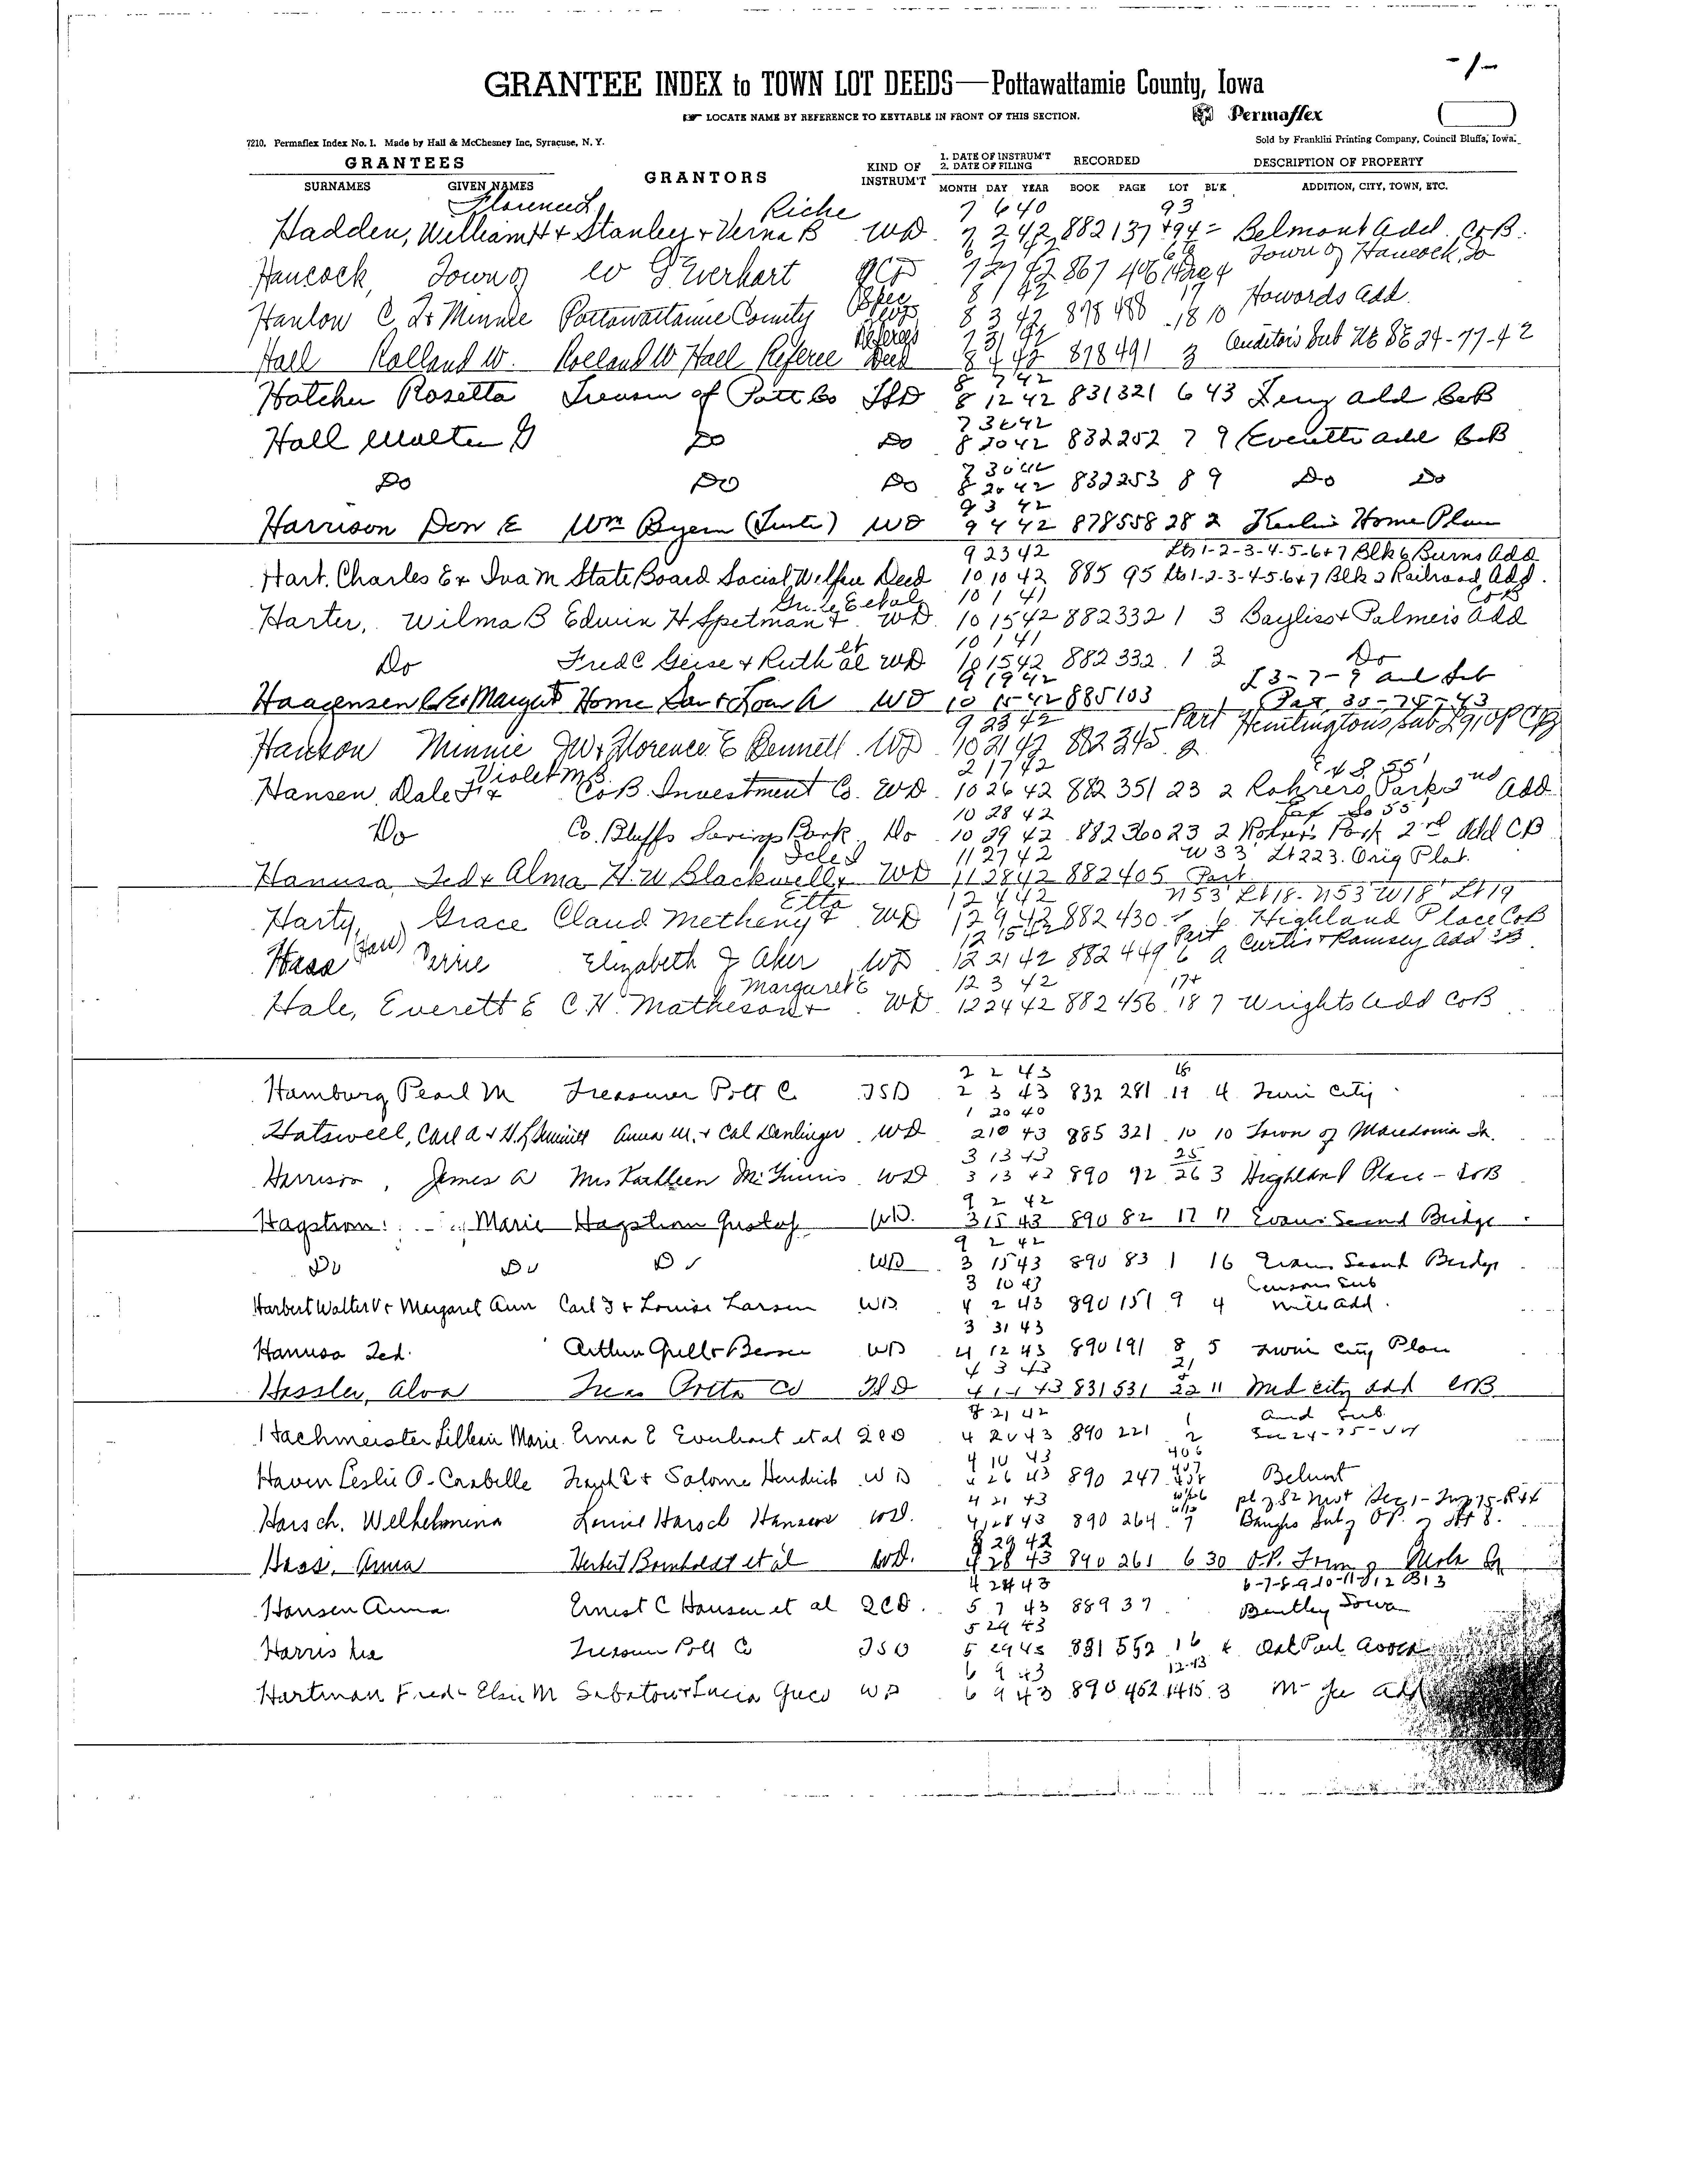 -1-
GRANTEE INDEX to TOWN LOT DEEDS—Pottawattamie County, Iowa
☞ LOCATE NAME BY REFERENCE TO KEYTABLE IN FRONT OF THIS SECTION.
Permaflex
7210. Permaflex Index No. 1. Made by Hall & McChesney Inc, Syracuse, N. Y.
Sold by Franklin Printing Company, Council Bluffs, Iowa.
GRANTEES GRANTORS KIND OF INSTRUM'T 1. DATE OF INSTRUM'T 2. DATE OF FILING RECORDED DESCRIPTION OF PROPERTY
SURNAMES GIVEN NAMES MONTH DAY YEAR BOOK PAGE LOT BL'K ADDITION, CITY, TOWN, ETC.
Florence Riche 7 6 40 93
Hadden, William H + Stanley + Verna B WD 7 2 42 882 137 +94 Belmont Add. CoB.
Town of Hancock, Ia
Hancock, Town of W G Everhart QCD 7 27 42 867 406
8 1 42 17
Hanlon C L + Minnie Pottawattamie County 8 3 42 878 488 18 10 Howards Add.
Referees 7 31 42
Hall Rolland W. Rolland W Hall Referee Deed 8 4 42 878 491 3 Auditors Sub NE SE 24-77-42
8 7 42
Hatcher Rosetta Treasurer of Pott Co TSD 8 12 42 831 321 6 43 add CoB
7 30 42
Hall Walter G Do Do 8 20 42 832 252 7 9 Everetts add CoB
7 30 42
Do Do Do 8 20 42 832 253 8 9 Do Do
9 3 42
Harrison Don E Wm Byers (Trustee) WD 9 4 42 878 558 28 2 Home Plan
9 23 42 Lts 1-2-3-4-5-6+7 Blk 6 Burns Add
Hart, Charles E + Iva M State Board Social Welfare Deed 10 10 42 885 95 Lts 1-2-3-4-5-6+7 Blk 2 Railroad Add.
10 1 41 CoB
Harter, Wilma B Edwin H Spetman + WD 10 15 42 882 332 1 3 Bayliss + Palmers Add
et 10 1 41
Do Fred C Geise + Ruth al WD 10 15 42 882 332 1 3 Do
9 19 42
Haagensen + Margaret Home Sav + Loan A WD 10 15 42 885 103
9 23 42 Part Huntingtons Sub
Hanson Minnie J W + Florence E Bennett WD 10 21 42 882 345 2
Violet M S. 2 17 42
Hansen, Dale F + CoB. Investment Co. WD 10 26 42 882 351 23 2 Rohrers Park 2nd Add
10 28 42 So 55'
Do Co. Bluffs Savings Bank Do 10 29 42 882 360 23 2 Rohrers Park 2nd Add CB
11 27 42 W 33' Lt 223. Orig Plat.
Hanusa Ted + Alma H. W Blackwell + WD 11 28 42 882 405 Part
Etta 12 4 42 N53' Lt 18. N53' W18' Lt 19
Harty, Grace Claud Metheny + WD 12 9 42 882 430 6 Highland Place CoB
12 15 42
Hass Perrie Elizabeth J Aker WD 12 21 42 882 449 Part 6 a Curtis + Ramsey Add
Margaret E 12 3 42 17+
Hale, Everett E C. H. Matheson + WD 12 24 42 882 456 18 7 Wrights Add CoB
2 2 43 18
Hamburg Pearl M Treasurer Pott C. TSD 2 3 43 832 281 19 4 Twin City
1 20 40
Hatswell, Carl A + Anna M. + Cal Denlinger WD 2 10 43 885 321 10 10 Town of Macedonia Ia.
3 13 43 25
Harrison, James A Mrs Kathleen McGinnis WD 3 13 43 890 92 26 3 Highland Place - CoB
9 2 42
Hagstrom Marie Hagstrom Gustaf WD. 3 15 43 890 82 17 17 Evans Second Bridge
9 2 42
Do Do Do WD 3 15 43 890 83 1 16 Evans Second Bridge
3 10 43 Sub
Harbert Walter V + Margaret Ann Carl J + Louise Larsen WD 4 2 43 890 151 9 4 Mills Add.
3 31 43
Hanusa Ted. Arthur WD 4 12 43 890 191 8 5 Twin City Plan
4 3 43 21
Hassler, Alva Treas Potta Co TSD 43 831 531 22 11 Mid city add CoB
8 21 42 1 and Sub
Hachmeister Lillian Marie Erma E Everhart et al QCD 4 20 43 890 221 2
4 10 43 406
Haven Leslie O - Corabelle + Salome Hendrick WD 4 26 43 890 247 Belmont
4 21 43
Harsch, Wilhelmina Louise Harsch Hansen WD. 4 28 43 890 264 7
8 29 42
Hass, Anna Herbert Bornholdt et al WD. 4 28 43 890 261 6 30 O.P. Town
4 24 43 6-7-8-9-10-11-12 B13
Hansen Anna Ernest C Hansen et al QCD. 5 7 43 889 37 Bentley Iowa
5 29 43
Harris Treasurer Pott Co TSD 5 29 43 831 552 16 Oak Park
6 9 43 12-13
Hartman Fred - Elsie M WD 6 9 43 890 452 14 15 3 McGee Add